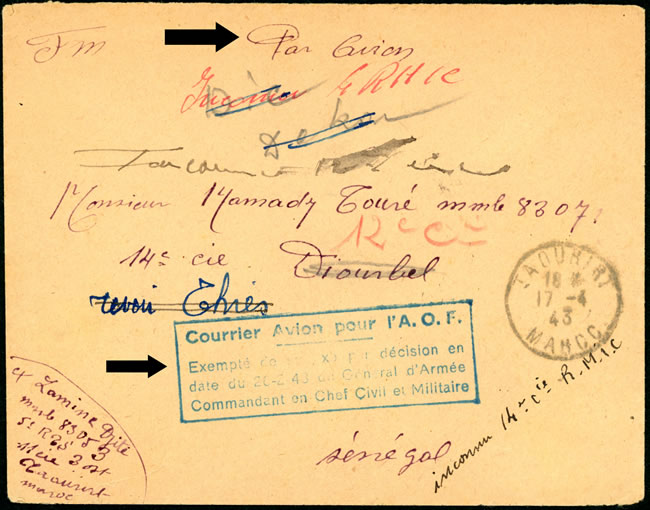 Fm
Par Avion
Inconnu 4 RMIC
Dakar
Inconnu
Monsieur Mamady Touré mmle 8307
12e Cie
14e cie Diourbel
revoir Thiès
TAOURIRT
18
17 -4
43
MAROC
Courrier Avion pour l'A. O. F.
Exempté de décision en
date du 26-2 43 du Général d'Armée
Commandant en Chef Civil et Militaire
ex Lamine
mmle 83053
11 cie
Taourirt
maroc
Sénégal
inconnu 14e cie R.M.I.C